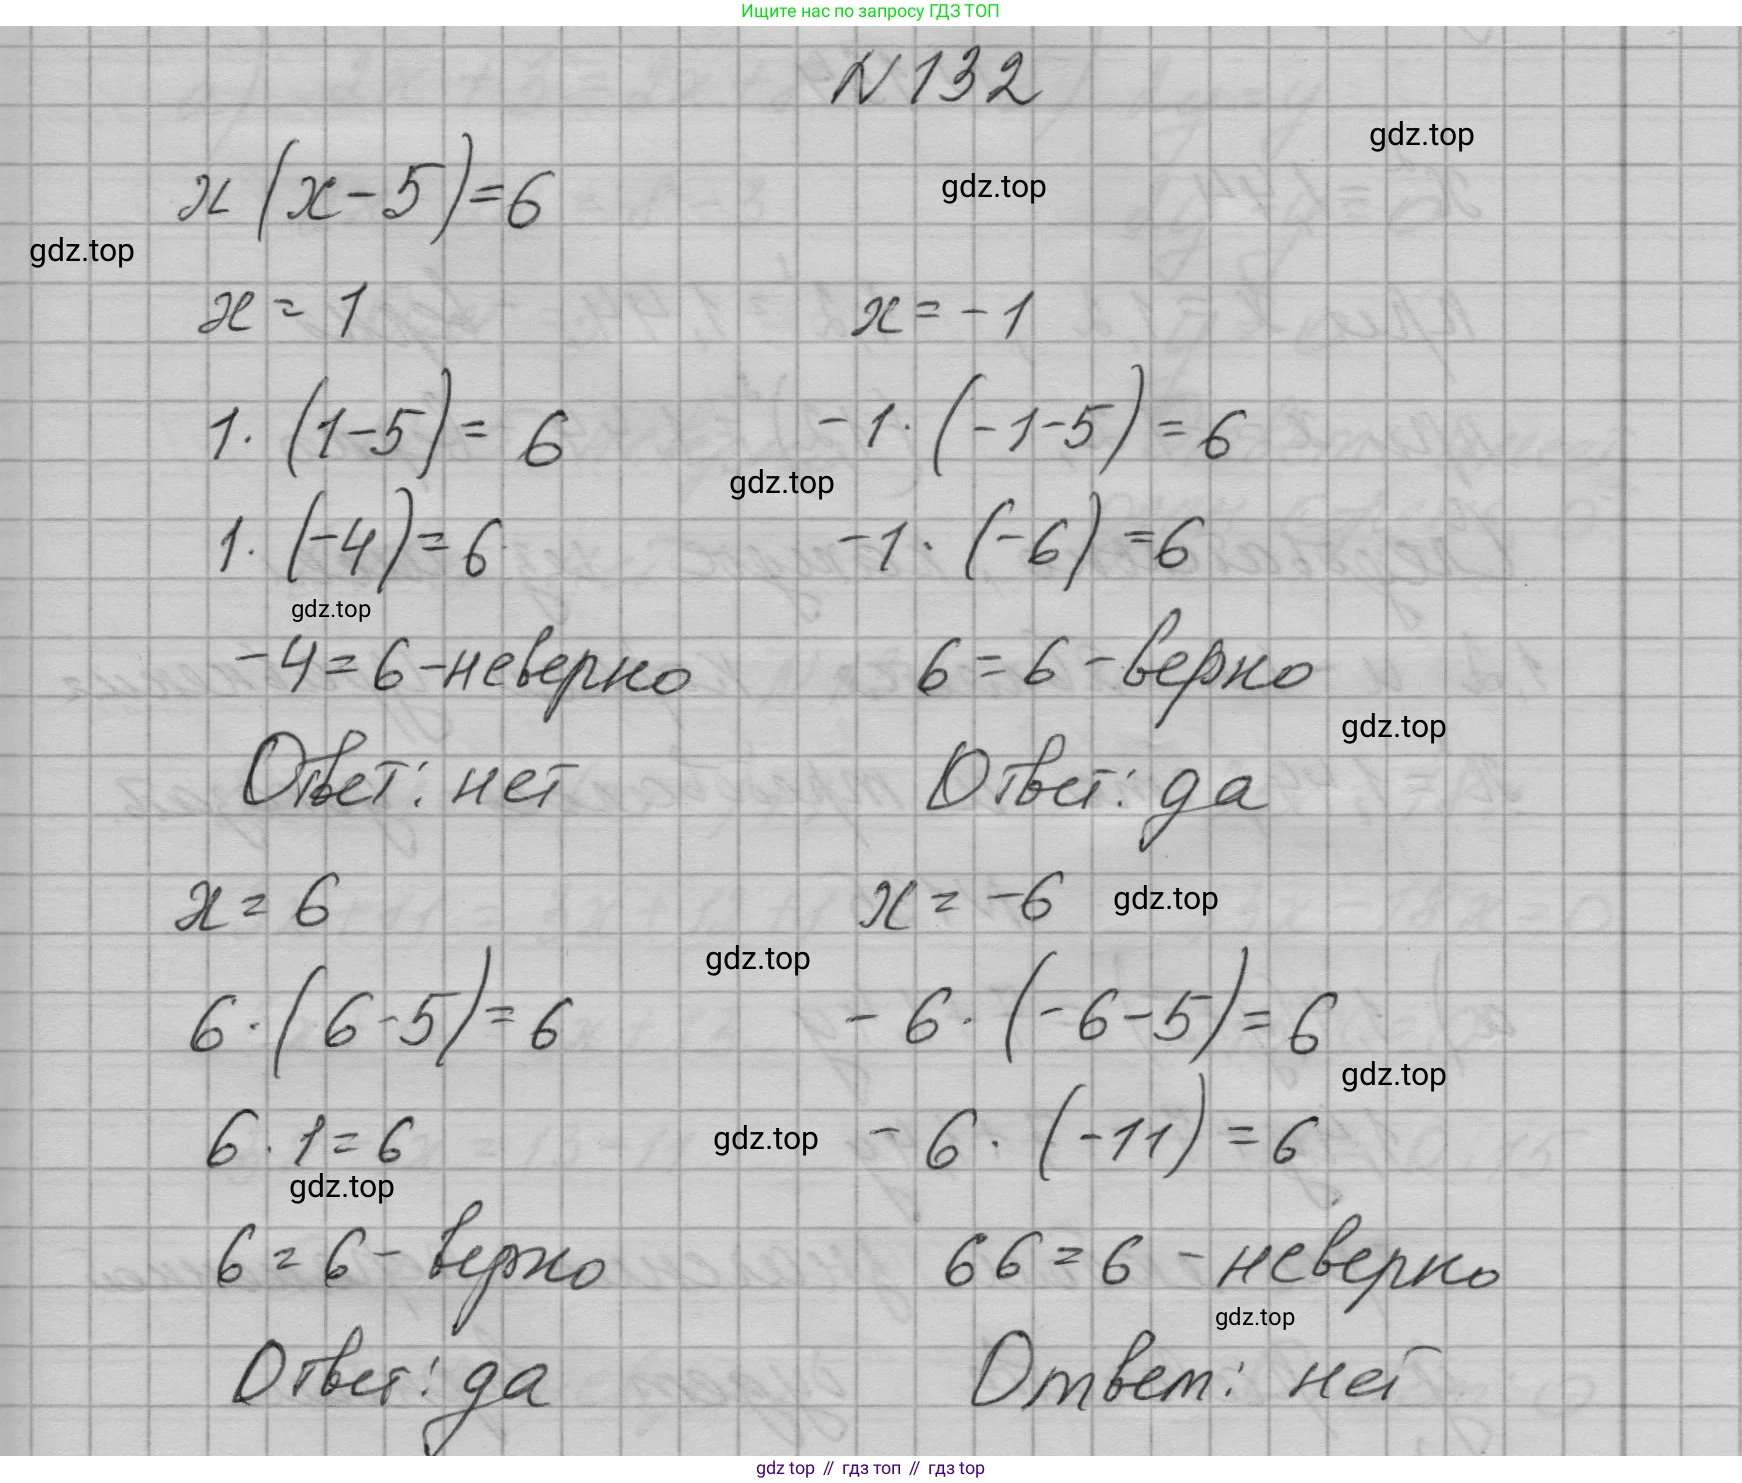 Ищите нас по запросу ГДЗ ТОП
N132
gdz.top
gdz.top
x(x-5)=6
gdz.top
x=1
x=-1
1·(1-5)=6
-1·(-1-5)=6
gdz.top
1·(-4)=6
-1·(-6)=6
gdz.top
-4=6-неверно
6=6-верно
gdz.top
Ответ: нет
Ответ: да
x=6
x=-6
gdz.top
gdz.top
6·(6-5)=6
-6·(-6-5)=6
gdz.top
6·1=6
gdz.top
-6·(-11)=6
gdz.top
6=6-верно
66=6-неверно
gdz.top
Ответ: да
Ответ: нет
gdz top // гдз топ // гдз top